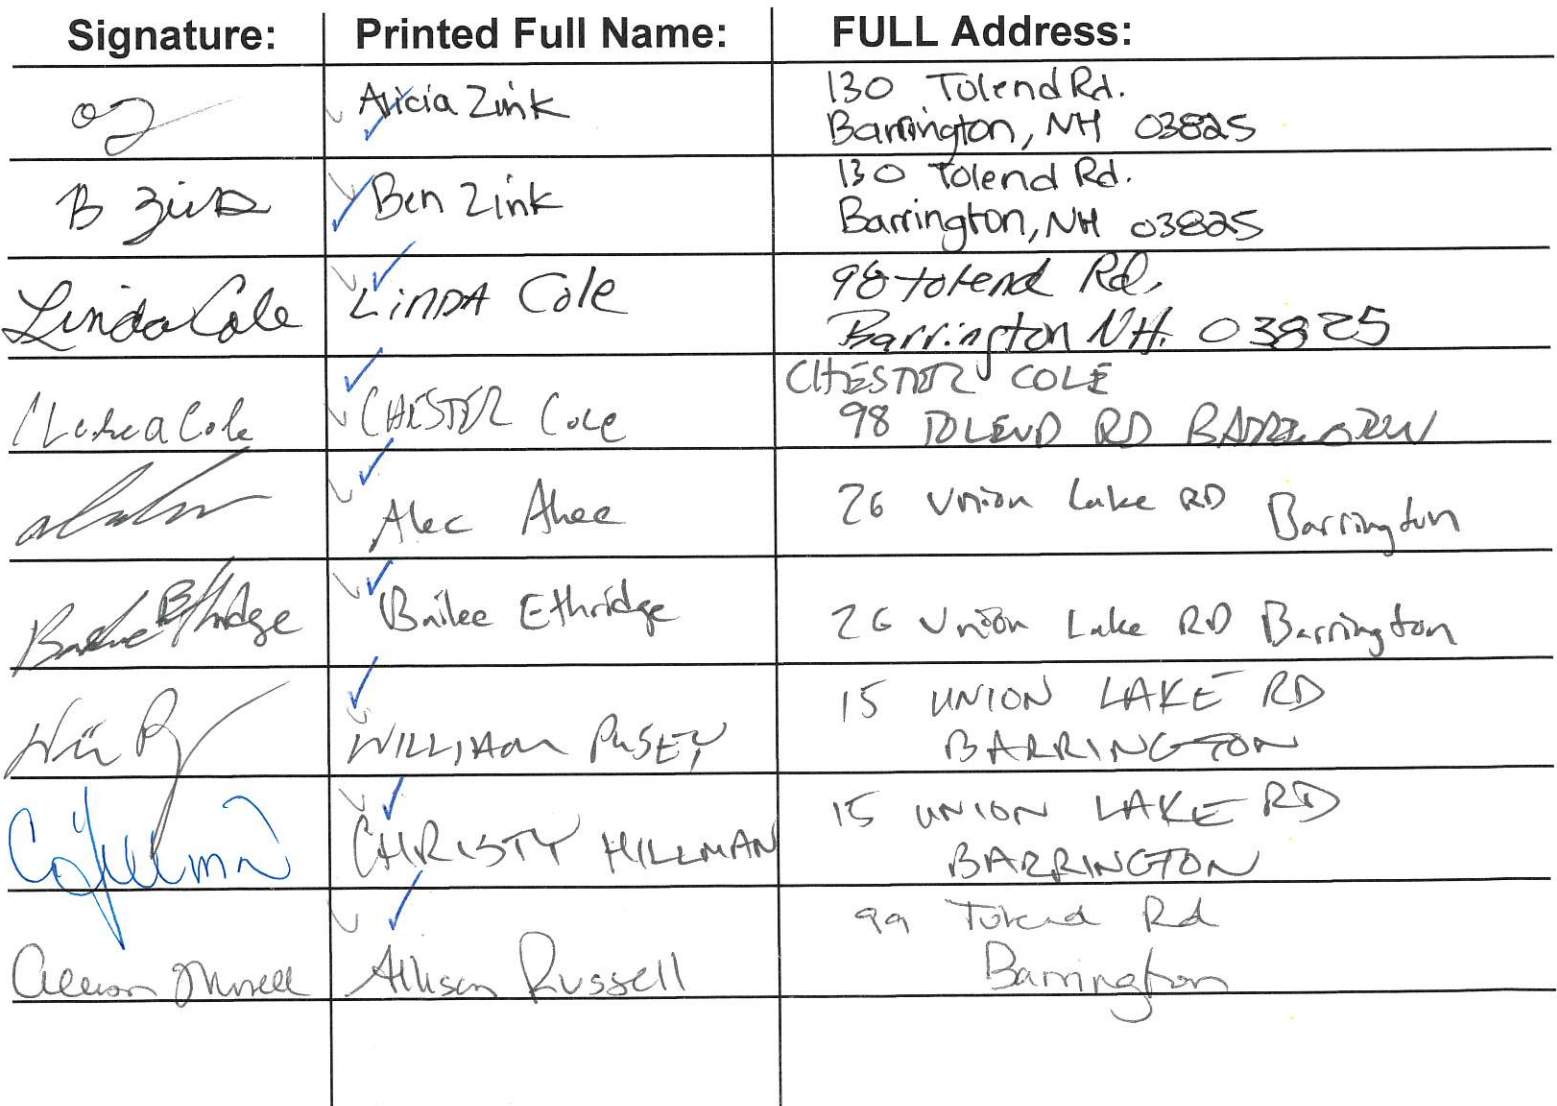 Signature: Printed Full Name: FULL Address:
Alicia Zink 130 Tolend Rd.
Barrington, NH 03825
B Zink Ben Zink 130 Tolend Rd.
Barrington, NH 03825
Linda Cole LinDA Cole 98 tolend Rd.
Barrington NH. 03825
CHESTER COLE
CHESTER Cole 98 TOLEND RD BARRINGTON
Alec Ahee 26 Union Lake RD Barrington
Bailee Ethridge Bailee Ethridge 26 Union Lake RD Barrington
15 UNION LAKE RD
WILLIAM PUSEY BARRINGTON
15 UNION LAKE RD
CHRISTY HILLMAN BARRINGTON
99 Tolend Rd
Allison Russell Allison Russell Barrington